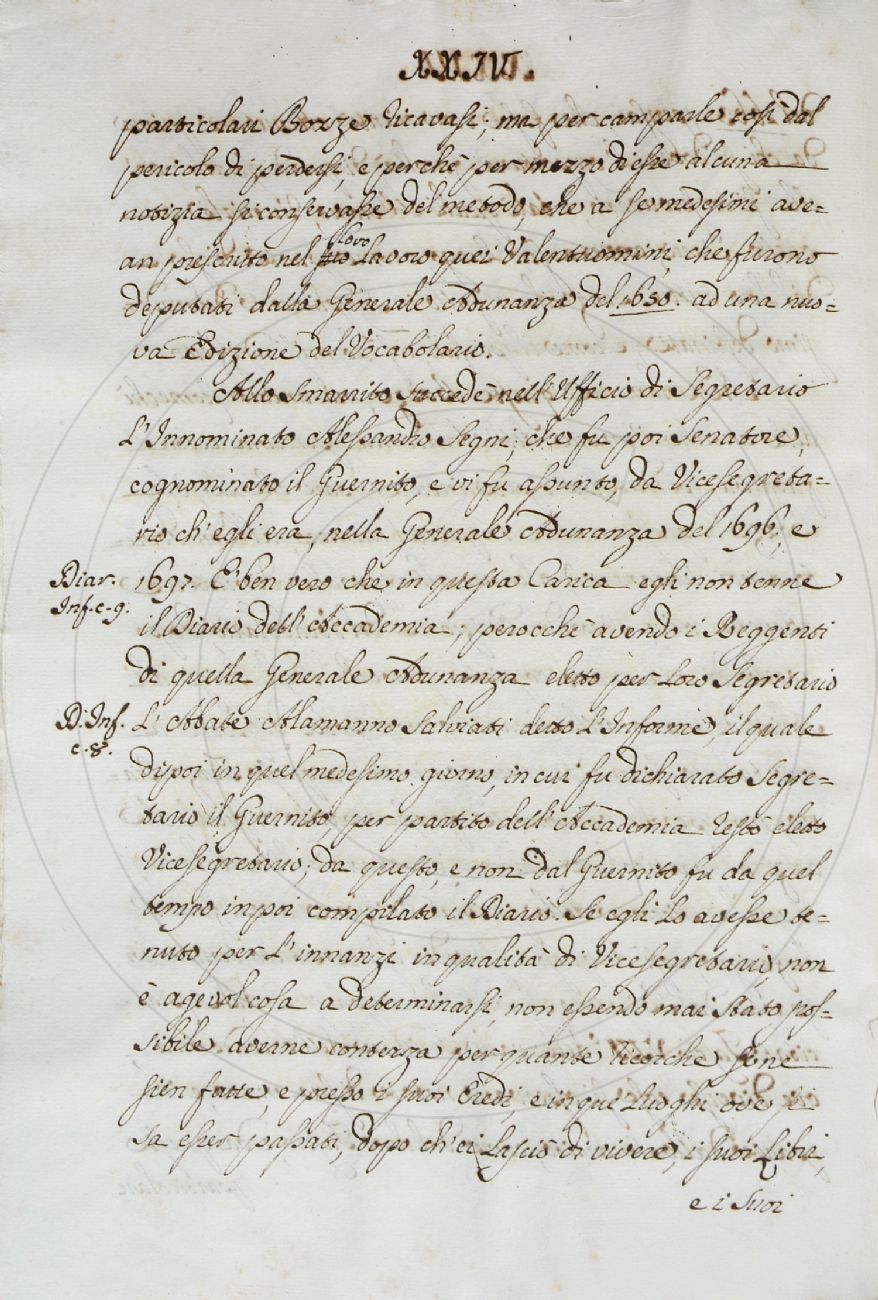 XXIV.
particolari Bozze ricavasi; ma per camparle così dal
pericolo di perdersi, e perchè per mezzo di esse alcuna
notizia si conservasse del metodo, che a se medesimi ave=
an prescritto nel loro Lavoro quei Valentuomini, che furono
deputati dalla Generale Adunanza del 1650. ad una nuo=
va Edizione del Vocabolario.
Allo Smarrito succedè nell'Ufficio di Segretario
L'Innominato Alessandro Segni, che fu poi Senatore,
cognominato il Guernito, e vi fu assunto, da Vicesegreta=
rio ch'egli era, nella Generale Adunanza del 1696, e
Diar. Inf. c. 9.
1697. E' ben vero che in questa Carica egli non tenne
il Diario dell'Accademia; perocchè avendo i Reggenti
di quella Generale Adunanza eletto per Loro Segretario
D. Inf. c. 8.
L'Abate Alamanno Salviati detto L'Informe, il quale
dipoi in quel medesimo giorno, in cui fu dichiarato Segre=
tario il Guernito, per partito dell'Accademia restò eletto
Vicesegretario; da questo, e non dal Guernito fu da quel
tempo in poi compilato il Diario. Se egli Lo avesse te=
nuto per L'innanzi in qualità di Vicesegretario, non
è agevol cosa a determinarsi, non essendo mai stato pos=
sibile averne contezza per quante ricerche sene
sien fatte, e presso i suoi Eredi, e in que' Luoghi ove si
sa esser passati, dopo ch'ei Lasciò di vivere, i suoi Libri,
e i suoi